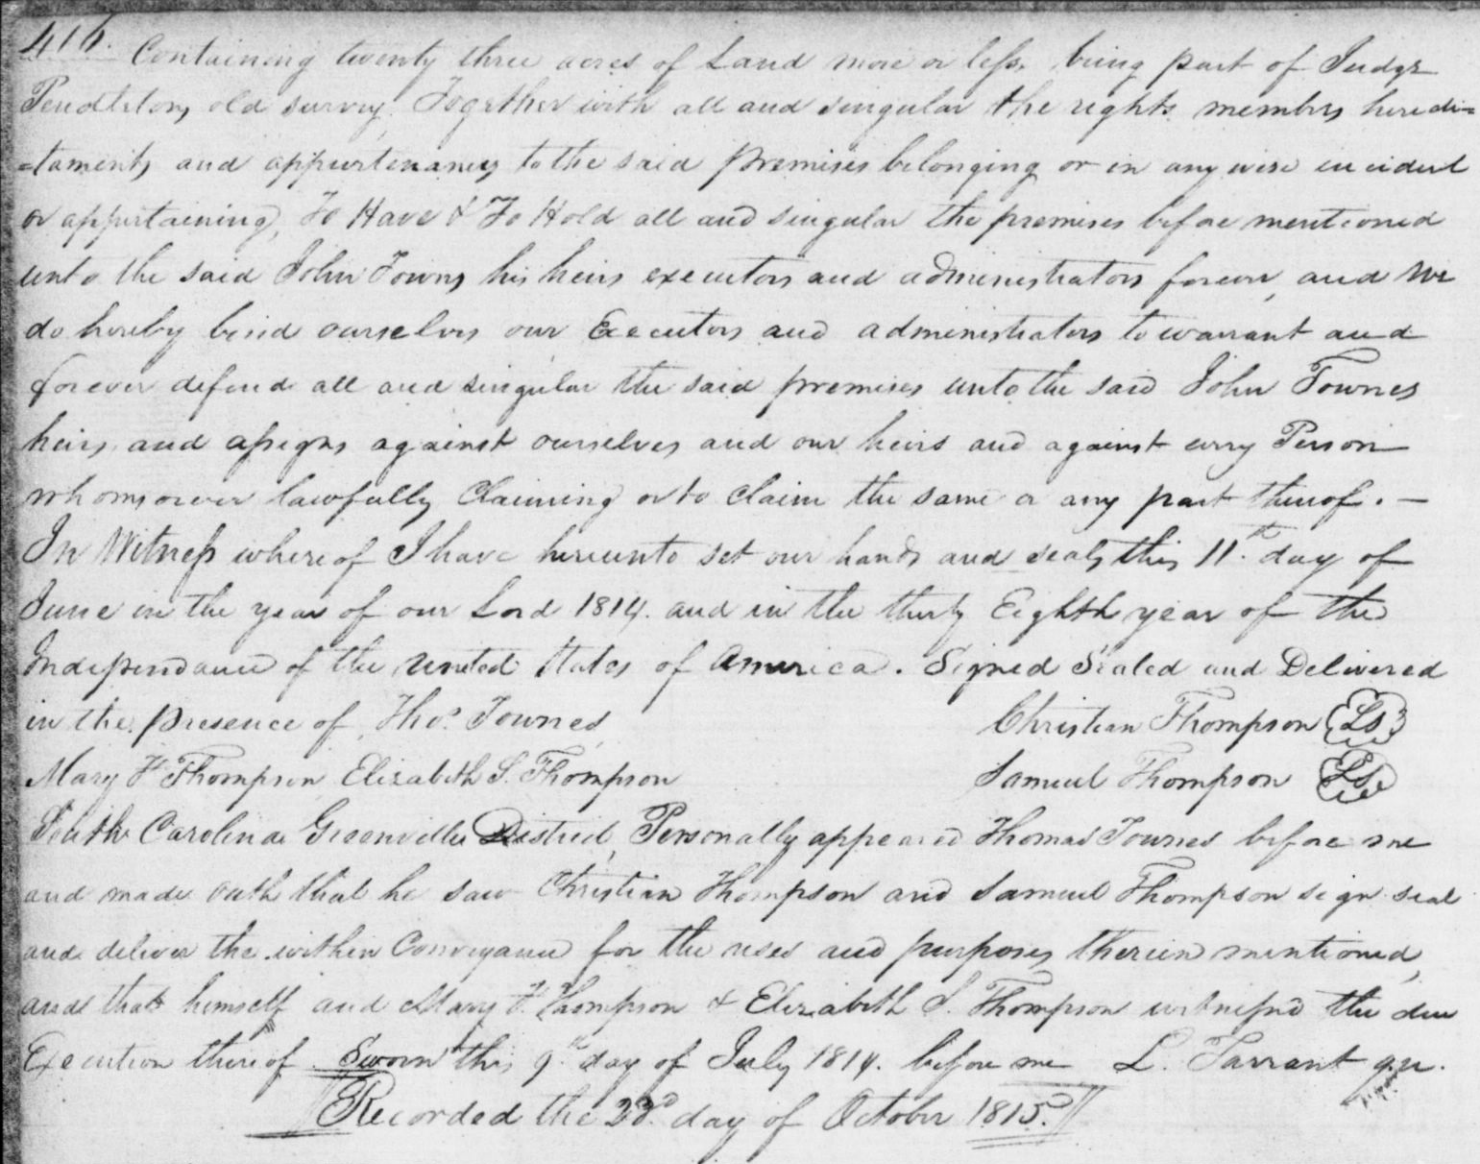 416.
Containing twenty three acres of Land more or less, being part of Judge
Pendletons old survey, Together with all and singular the rights members heredi=
=taments and appurtenances to the said premises belonging or in any wise incident
or appertaining, To Have & To Hold all and singular the premises before mentioned
unto the said John Towns his heirs executors and administrators forever, and We
do hereby bind ourselves our Executors and administrators to warrant and
forever defend all and singular the said premises unto the said John Townes
heirs and assigns against ourselves and our heirs and against every Person
whomsoever lawfully Claiming or to claim the same or any part thereof. —
In Witness whereof I have hereunto set our hands and seals this 11.th day of
June in the year of our Lord 1814. and in the thirty Eighth year of the
Independance of the United States of America. Signed Sealed and Delivered
in the presence of Thos. Townes Christian Thompson LS
Mary F. Thompson Elizabeth S. Thompson Samuel Thompson LS
South Carolina Greenville District, Personally appeared Thomas Townes before me
and made oath that he saw Christian Thompson and Samuel Thompson sign seal
and deliver the within Conveyance for the uses and purposes therein mentioned,
and that himself and Mary F. Thompson & Elizabeth S. Thompson witnessd the due
Execution thereof. Sworn this 9th day of July 1814. before me L. Tarrant q.u.
Recorded the 23d. day of October 1815.